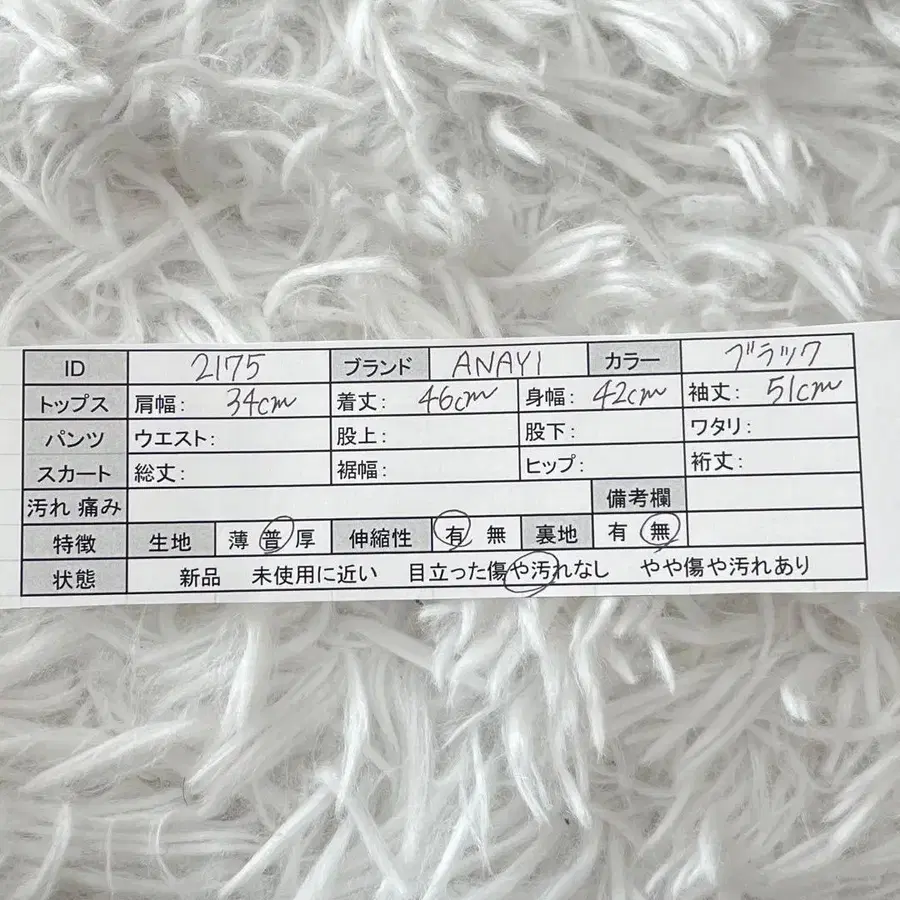 ID 2175 ブランド ANAYI カラー ブラック
トップス 肩幅: 34cm 着丈: 46cm 身幅: 42cm 袖丈: 51cm
パンツ ウエスト: 股上: 股下: ワタリ:
スカート 総丈: 裾幅: ヒップ: 裄丈:
汚れ 痛み 備考欄
特徴 生地 薄 普 厚 伸縮性 有 無 裏地 有 無
状態 新品 未使用に近い 目立った傷や汚れなし やや傷や汚れあり